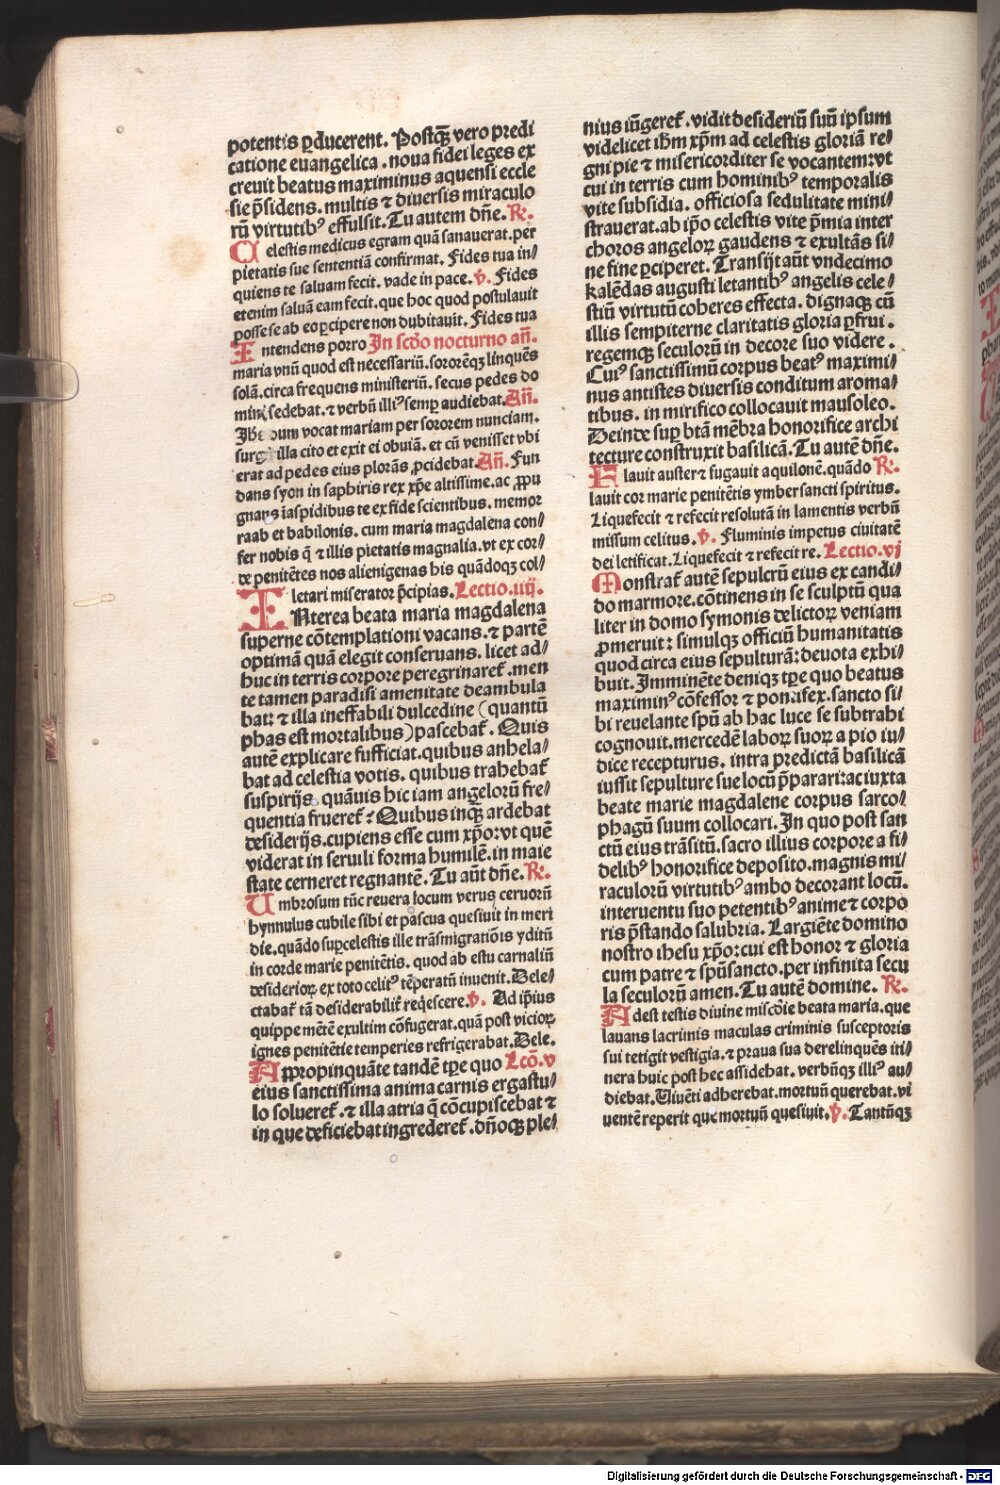 potentis ꝑducerent. Postqȝ vero predi
catione euangelica. noua fidei leges ex
creuit beatus maximinus aquensi eccle
sie p̄sidens. multis ⁊ diuersis miraculo
rū virtutibꝰ effulsit. Tu autem dn̄e. R̄.
Celestis medicus egram quā sanauerat. per
pietatis sue sententiā confirmat. Fides tua in⸗
quiens te saluam fecit. vade in pace. v̄. Fides
etenim saluā eam fecit. que hoc quod postulauit
posse se ab eo ꝑcipere non dubitauit. Fides tua
Intendens porro In scd̄o nocturno an̄.
maria vnū quod est necessariū. sororēqȝ linquēs
solā. circa frequens ministeriū. secus pedes do
mini sedebat. ⁊ verbū illiꝰ semꝑ audiebat. An̄.
Ihesum vocat mariam per sororem nunciam.
surgit illa cito et exit ei obuiā. et cū venisset vbi
erat ad pedes eius plorās ꝓcidebat. An̄. Fun
dans syon in saphiris rex xp̄e altissime. ac ꝓpu
gnans īaspidibus te ex fide scientibus. memor
raab et babilonis. cum maria magdalena con⸗
fer nobis q̄ ⁊ illis pietatis magnalia. vt ex cor⸗
de penitētes nos alienigenas his quādoqȝ col⸗
letari miserator p̄cipias. Lectio. iiij.
INterea beata maria magdalena
superne cōtemplationi vacans. ⁊ partē
optimā quā elegit conseruans. licet ad⸗
huc in terris corpore peregrinaret̄. men
te tamen paradisi amenitate deambula
bat: ⁊ illa ineffabili dulcedine (quantū
phas est mortalibus) pascebat̄. Quis
autē explicare sufficiat. quibus anhela⸗
bat ad celestia votis. quibus trahebat̄
suspirijs. quāuis hic iam angelorū fre⸗
quentia frueret̄: Quibus inqȝ ardebat
desiderijs. cupiens esse cum xp̄o: vt quē
viderat in seruili forma humilē. in maie
state cerneret regnantē. Tu aūt dn̄e. R̄.
Umbrosum tūc reuera locum verus ceruorū
hynnulus cubile sibi et pascua quesiuit in meri
die. quādo suꝑcelestis ille trāsmigratiōis yditū
in corde marie penitētis. quod ab estu carnaliū
desiderioꝝ ex toto celitꝰ tēperatū inuenit. Dele⸗
ctabat̄ tā desiderabilit̄ reqescere. v̄. Ad ip̄ius
quippe mētē exultim cōfugerat. quā post vicioꝝ
ignes penitētie temperies refrigerabat. Dele.
Appropinquāte tandē tꝑe quo Lcō. v
eius sanctissima anima carnis ergastu⸗
lo solueret̄. ⁊ illa atria q̄ cōcupiscebat ⁊
in que deficiebat ingrederet̄. dn̄oqȝ ple⸗
nius iūgeret̄. vidit desideriū suū ipsum
videlicet ihm̄ xp̄m ad celestis gloriā re⸗
gni pie ⁊ misericorditer se vocantem: vt
cui in terris cum hominibꝰ temporalis
vite subsidia. officiosa sedulitate mini⸗
strauerat. ab ip̄o celestis vite p̄mia inter
choros angeloꝝ gaudens ⁊ exultās si⸗
ne fine ꝑciperet. Transijt aūt vndecimo
kalēdas augusti letantibꝰ angelis cele⸗
stiū virtutū coheres effecta. dignaqȝ cū
illis sempiterne claritatis gloria ꝑfrui.
regemqȝ seculorū in decore suo videre.
Cuiꝰ sanctissimū corpus beatꝰ maximi⸗
nus antistes diuersis conditum aroma⸗
tibus. in mirifico collocauit mausoleo.
Deinde suꝑ btā mēbra honorifice archi
tecture construxit basilicā. Tu autē dn̄e.
Flauit auster ⁊ fugauit aquilonē. quādo R̄.
lauit cor marie penitētis ymber sancti spiritus.
Liquefecit ⁊ refecit resolutā in lamentis verbū
missum celitus. v̄. Fluminis impetus ciuitatē
dei letificat. Liquefecit ⁊ refecit re. Lectio. vj
Monstrat̄ autē sepulcrū eius ex candi⸗
do marmore. cōtinens in se sculptū qua
liter in domo symonis delictoꝝ veniam
ꝓmeruit: simulqȝ officiū humanitatis
quod circa eius sepulturā: deuota exhi⸗
buit. Imminēte deniqȝ tꝑe quo beatus
maximinꝰ cōfessor ⁊ pontifex. sancto si⸗
bi reuelante spū ab hac luce se subtrahi
cognouit. mercedē laboꝝ suoꝝ a pio iu⸗
dice recepturus. intra predictā basilicā
iussit sepulture sue locū p̄parari: ac iuxta
beate marie magdalene corpus sarco⸗
phagū suum collocari. In quo post san
ctū eius trāsitū. sacro illius corpore a fi⸗
delibꝰ honorifice deposito. magnis mi⸗
raculorū virtutibꝰ ambo decorant locū.
interuentu suo petentibꝰ anime ⁊ corpo
ris p̄stando salubria. Largiēte domino
nostro ihesu xp̄o: cui est honor ⁊ gloria
cum patre ⁊ spūsancto. per infinita secu
la seculorū amen. Tu autē domine. R̄.
Adest testis diuine miscd̄ie beata maria. que
lauans lacrimis maculas criminis susceptoris
sui tetigit vestigia. ⁊ praua sua derelinquēs iti⸗
nera huic post hec assidebat. verbūqȝ illiꝰ au⸗
diebat. Uiuēti adherebat. mortuū querebat. vi
uentē reperit que mortuū quesiuit. v̄. Tantūqȝ
Digitalisierung gefördert durch die Deutsche Forschungsgemeinschaft - DFG